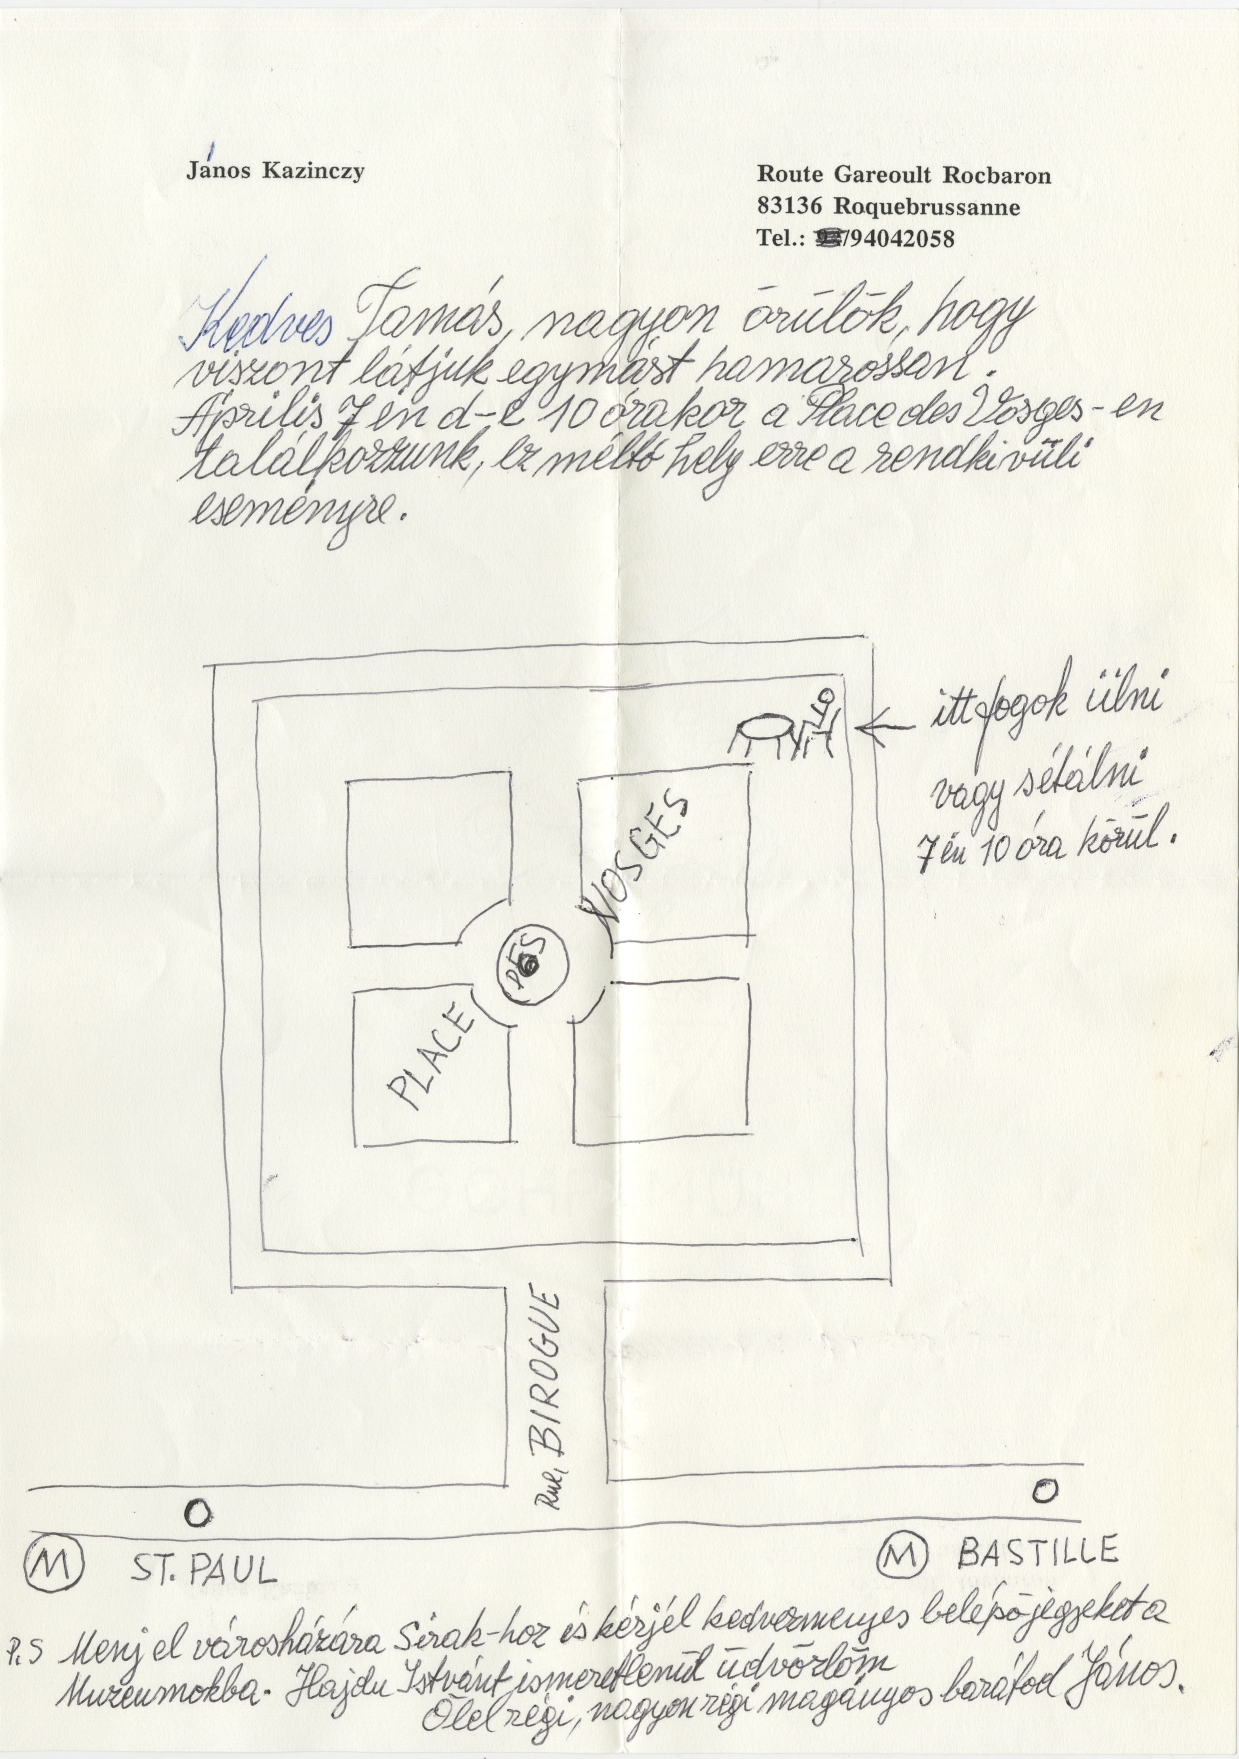 János Kazinczy
Route Gareoult Rocbaron
83136 Roquebrussanne
Tel.: /94042058
Kedves Tamás, nagyon örülök, hogy
viszont látjuk egymást hamarossan.
Április 7 én d-e 10 órakor a Place des Vosges-en
találkozzunk, ez méltó hely erre a rendkivüli
eseményre.
itt fogok ülni
vagy sétálni
7 én 10 óra körül.
PLACE DES VOSGES
Rue, BIROGUE
M ST. PAUL
M BASTILLE
P.S Menj el városházára Sirak-hoz és kérjél kedvezmenyes belépőjegyeket a
Muzeumokba. Hajdu Istvánt ismeretlenül üdvözlöm
Ölel régi, nagyon régi magányos barátod János.